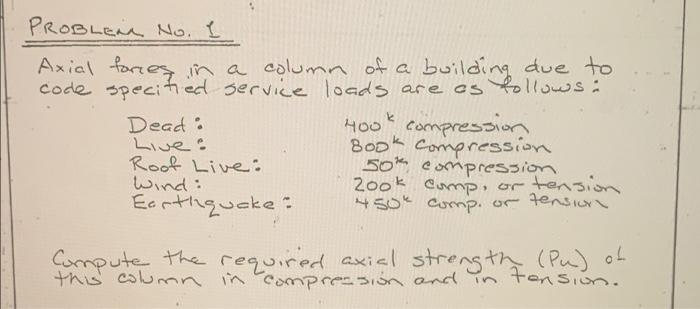 PROBLEM No. 1
Axial forces in a column of a building due to
code specified service loads are as follows:
Dead: 400k compression
Live: 800k compression
Roof Live: 50k compression
Wind: 200k comp. or tension
Earthquake: 450k comp. or tension
Compute the required axial strength (Pu) of
this column in compression and in tension.